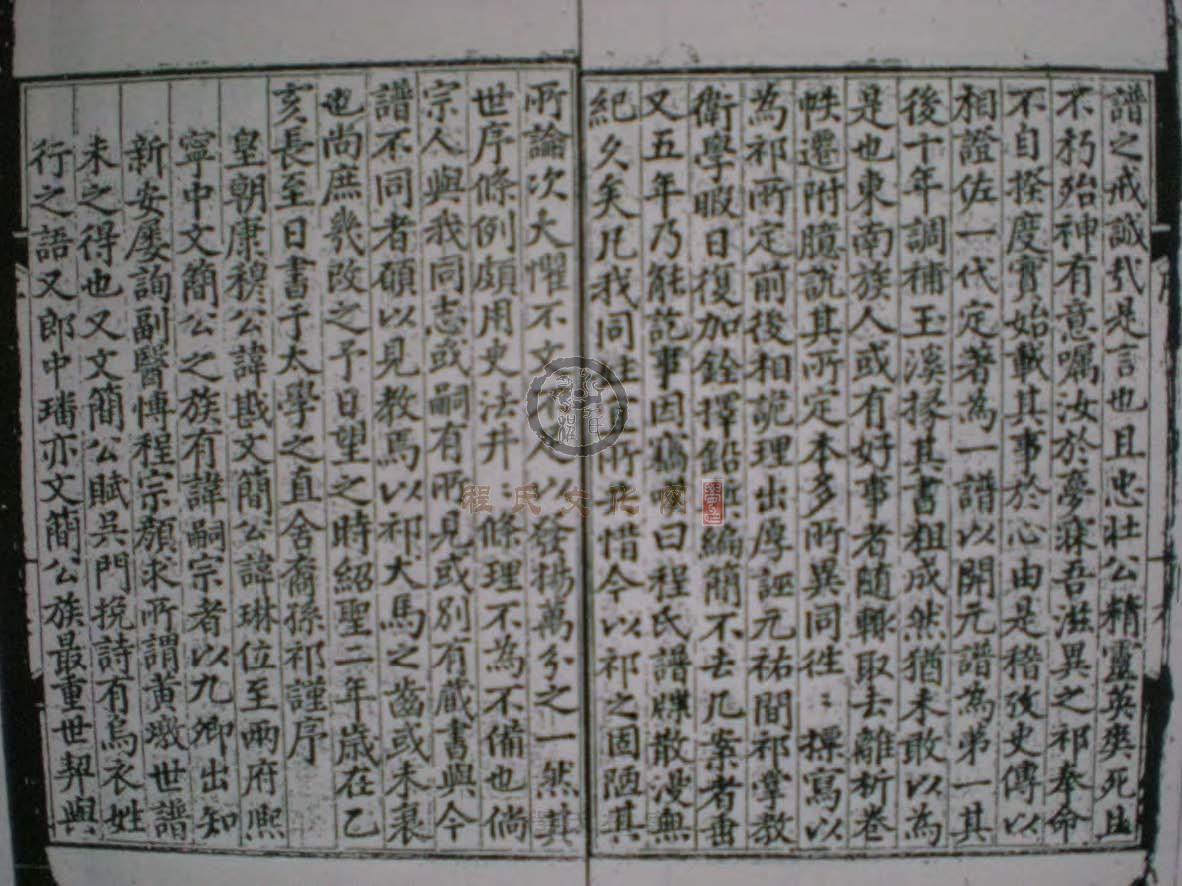 譜之戒誠哉是言也且忠壯公精靈英爽死且
不朽殆神有意嘱汝於夢寐吾滋異之祁奉命
不自揆度實始載其事於心由是稽攷史傳以
相證佐一代定著為一譜以開元譜為第一其
後十年調補玉溪掾其書粗成然猶未敢以為
是也東南族人或有好事者隨輒取去離析卷
帙遷附臆說其所定本多所異同往〻摽寫以
為祁所定前後相詭理出厚誣元祐間祁掌教
衛學暇日復加銓擇鉛槧編簡不去几案者垂
又五年乃能訖事因竊嘆曰程氏譜牒散漫無
紀久矣凡我同姓所惜今以祁之固陋其
所論次大懼不文以發揚萬分之一然其
世序條例頗用史法井條理不為不備也倘
宗人與我同志或嗣有所見或别有蔵書與今
譜不同者碩以見教焉以祁犬馬之齒或未衰
也尚庶幾改之予日望之時紹聖二年歲在乙
亥長至日書于太學之直舍裔孫祁謹序
皇朝康穆公諱戡文簡公諱琳位至兩府熈
寧中文簡公之族有諱嗣宗者以九卿出知
新安屡詢副醫愽程宗顔求所謂黄墩世譜
未之得也又文簡公賦吴門挽詩有烏衣姓
行之語又郎中璠亦文簡公族最重世契與
程氏文化网